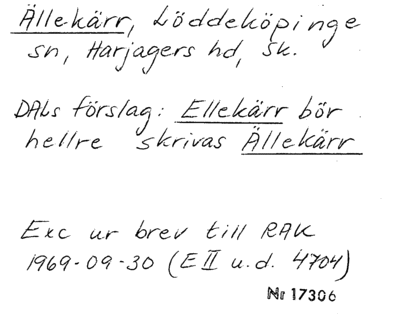 Ällekärr, Löddeköpinge
sn, Harjagers hd, Sk.
DALs förslag: Ellekärr bör
hellre skrivas Ällekärr
Exc ur brev till RAK
1969-09-30 (E II u.d. 4704)
Nr 17306